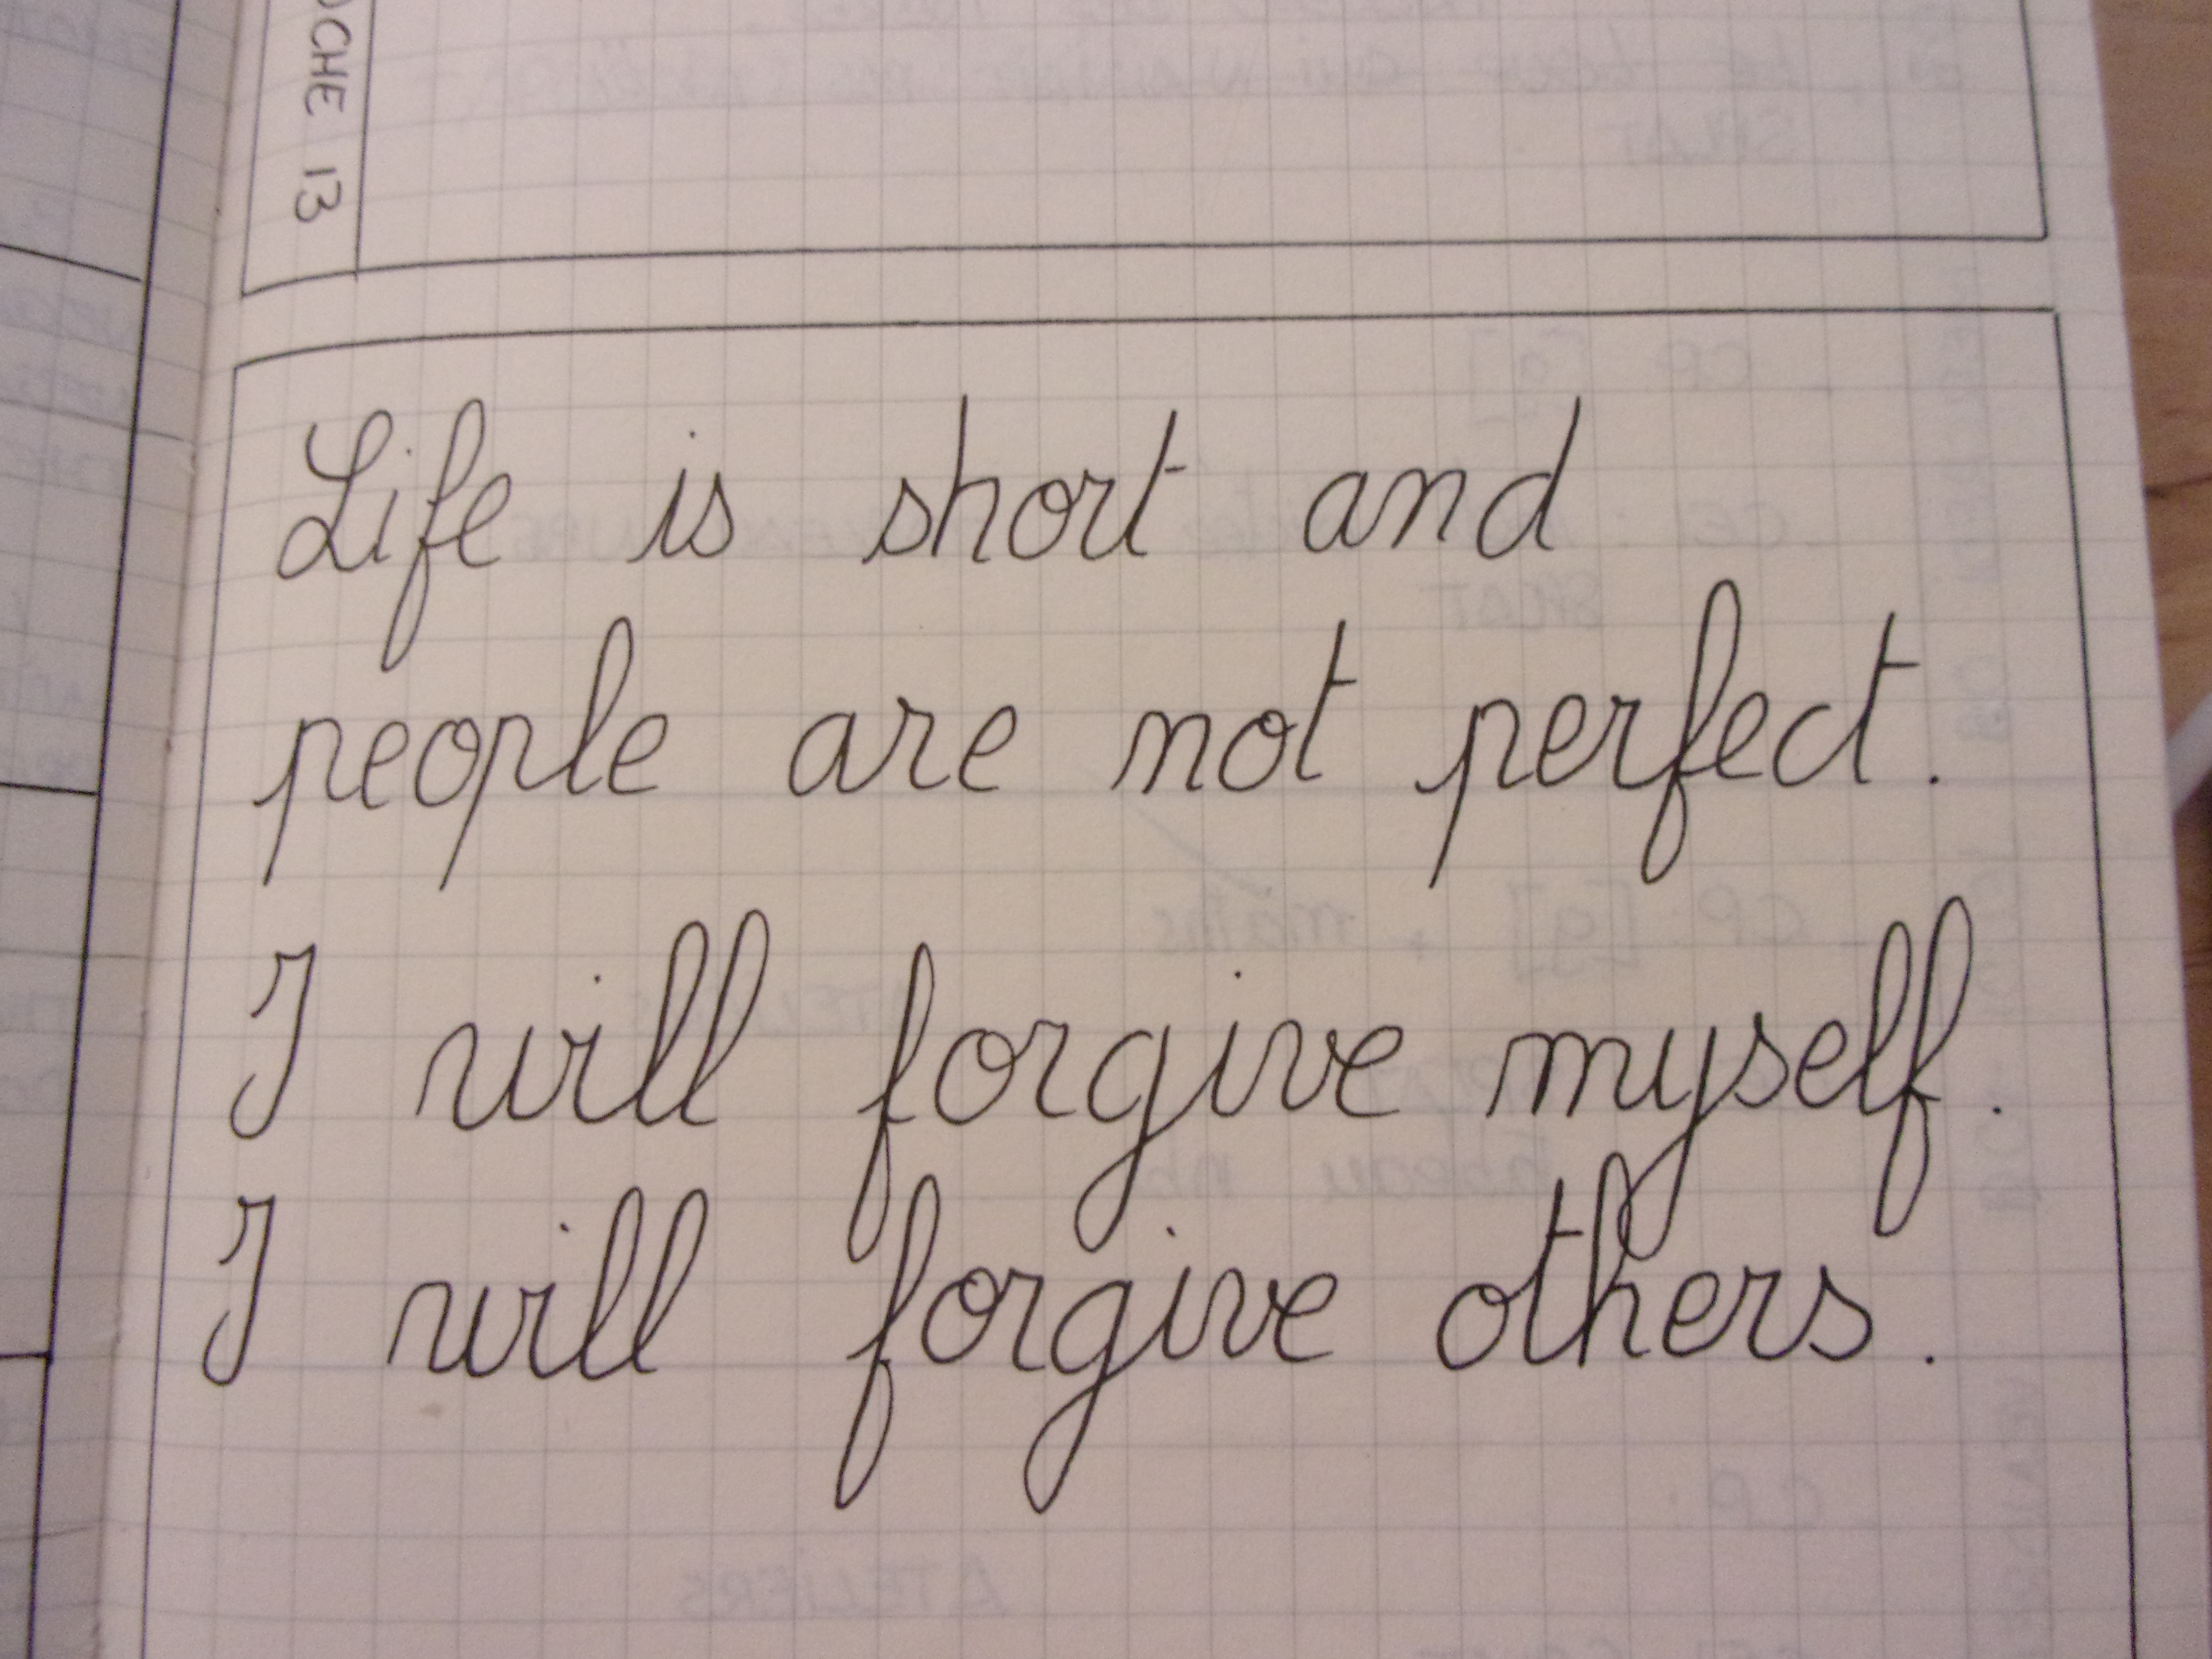 13
Life is short and
people are not perfect.
I will forgive myself.
I will forgive others.